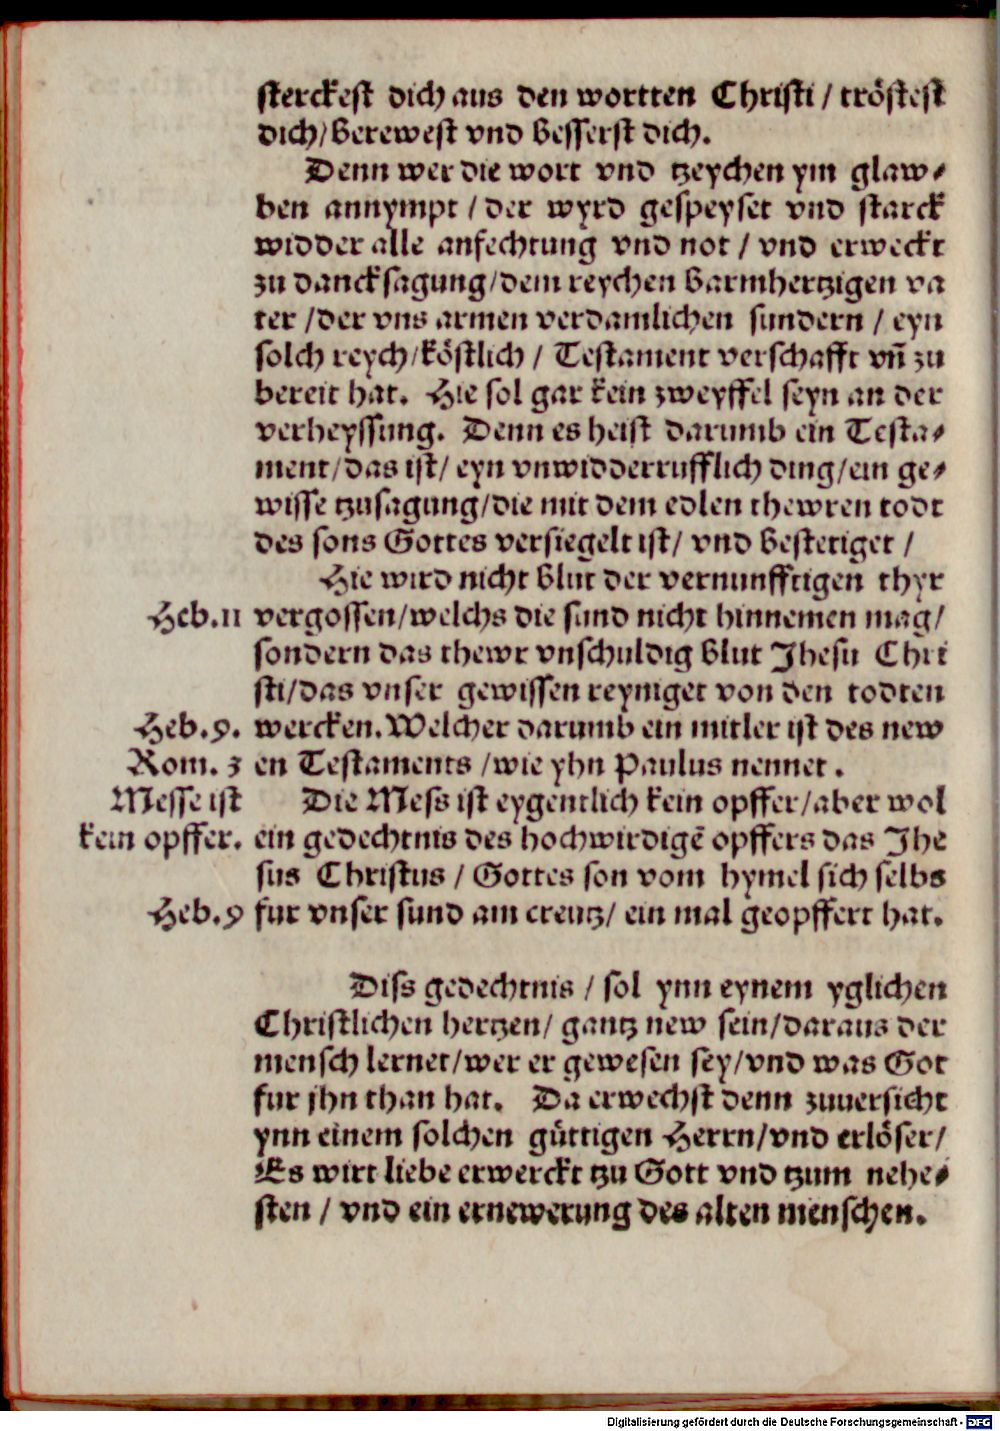 sterckest dich aus den wortten Christi / tröstest
dich/berewest vnd besserst dich.
Denn wer die wort vnd tzeychen ym glaw⸗
ben annympt / der wyrd gespeyset vnd starck
widder alle anfechtung vnd not / vnd erweckt
zu dancksagung/dem reychen barmhertzigen va
ter /der vns armen verdamlichen sundern / eyn
solch reych/köstlich / Testament verschafft vñ zu
bereit hat. Hie sol gar kein zweyffel seyn an der
verheyssung. Denn es heist darumb ein Testa⸗
ment/das ist/ eyn vnwidderrufflich ding/ein ge⸗
wisse tzusagung/die mit dem edlen thewren todt
des sons Gottes versiegelt ist/ vnd bestetiget /
Hie wird nicht blut der vernunfftigen thyr
Heb.11 vergossen/welchs die sund nicht hinnemen mag/
sondern das thewr vnschuldig blut Jhesu Chri
sti/das vnser gewissen reyniget von den todten
Heb.9. wercken. Welcher darumb ein mitler ist des new
Rom. 3 en Testaments /wie yhn Paulus nennet.
Messe ist Die Mess ist eygentlich kein opffer/aber wol
kein opffer. ein gedechtnis des hochwirdigẽ opffers das Jhe
sus Christus / Gottes son vom hymel sich selbs
Heb.9 fur vnser sund am creutz/ ein mal geopffert hat.
Diss gedechtnis / sol ynn eynem yglichen
Christlichen hertzen/ gantz new sein/daraus der
mensch lernet/wer er gewesen sey/vnd was Got
fur jhn than hat. Da erwechst denn zuuersicht
ynn einem solchen güttigen Herrn/vnd erlöser/
Es wirt liebe erwerckt tzu Gott vnd tzum nehe⸗
sten / vnd ein ernewerung des alten menschen.
Digitalisierung gefördert durch die Deutsche Forschungsgemeinschaft - DFG